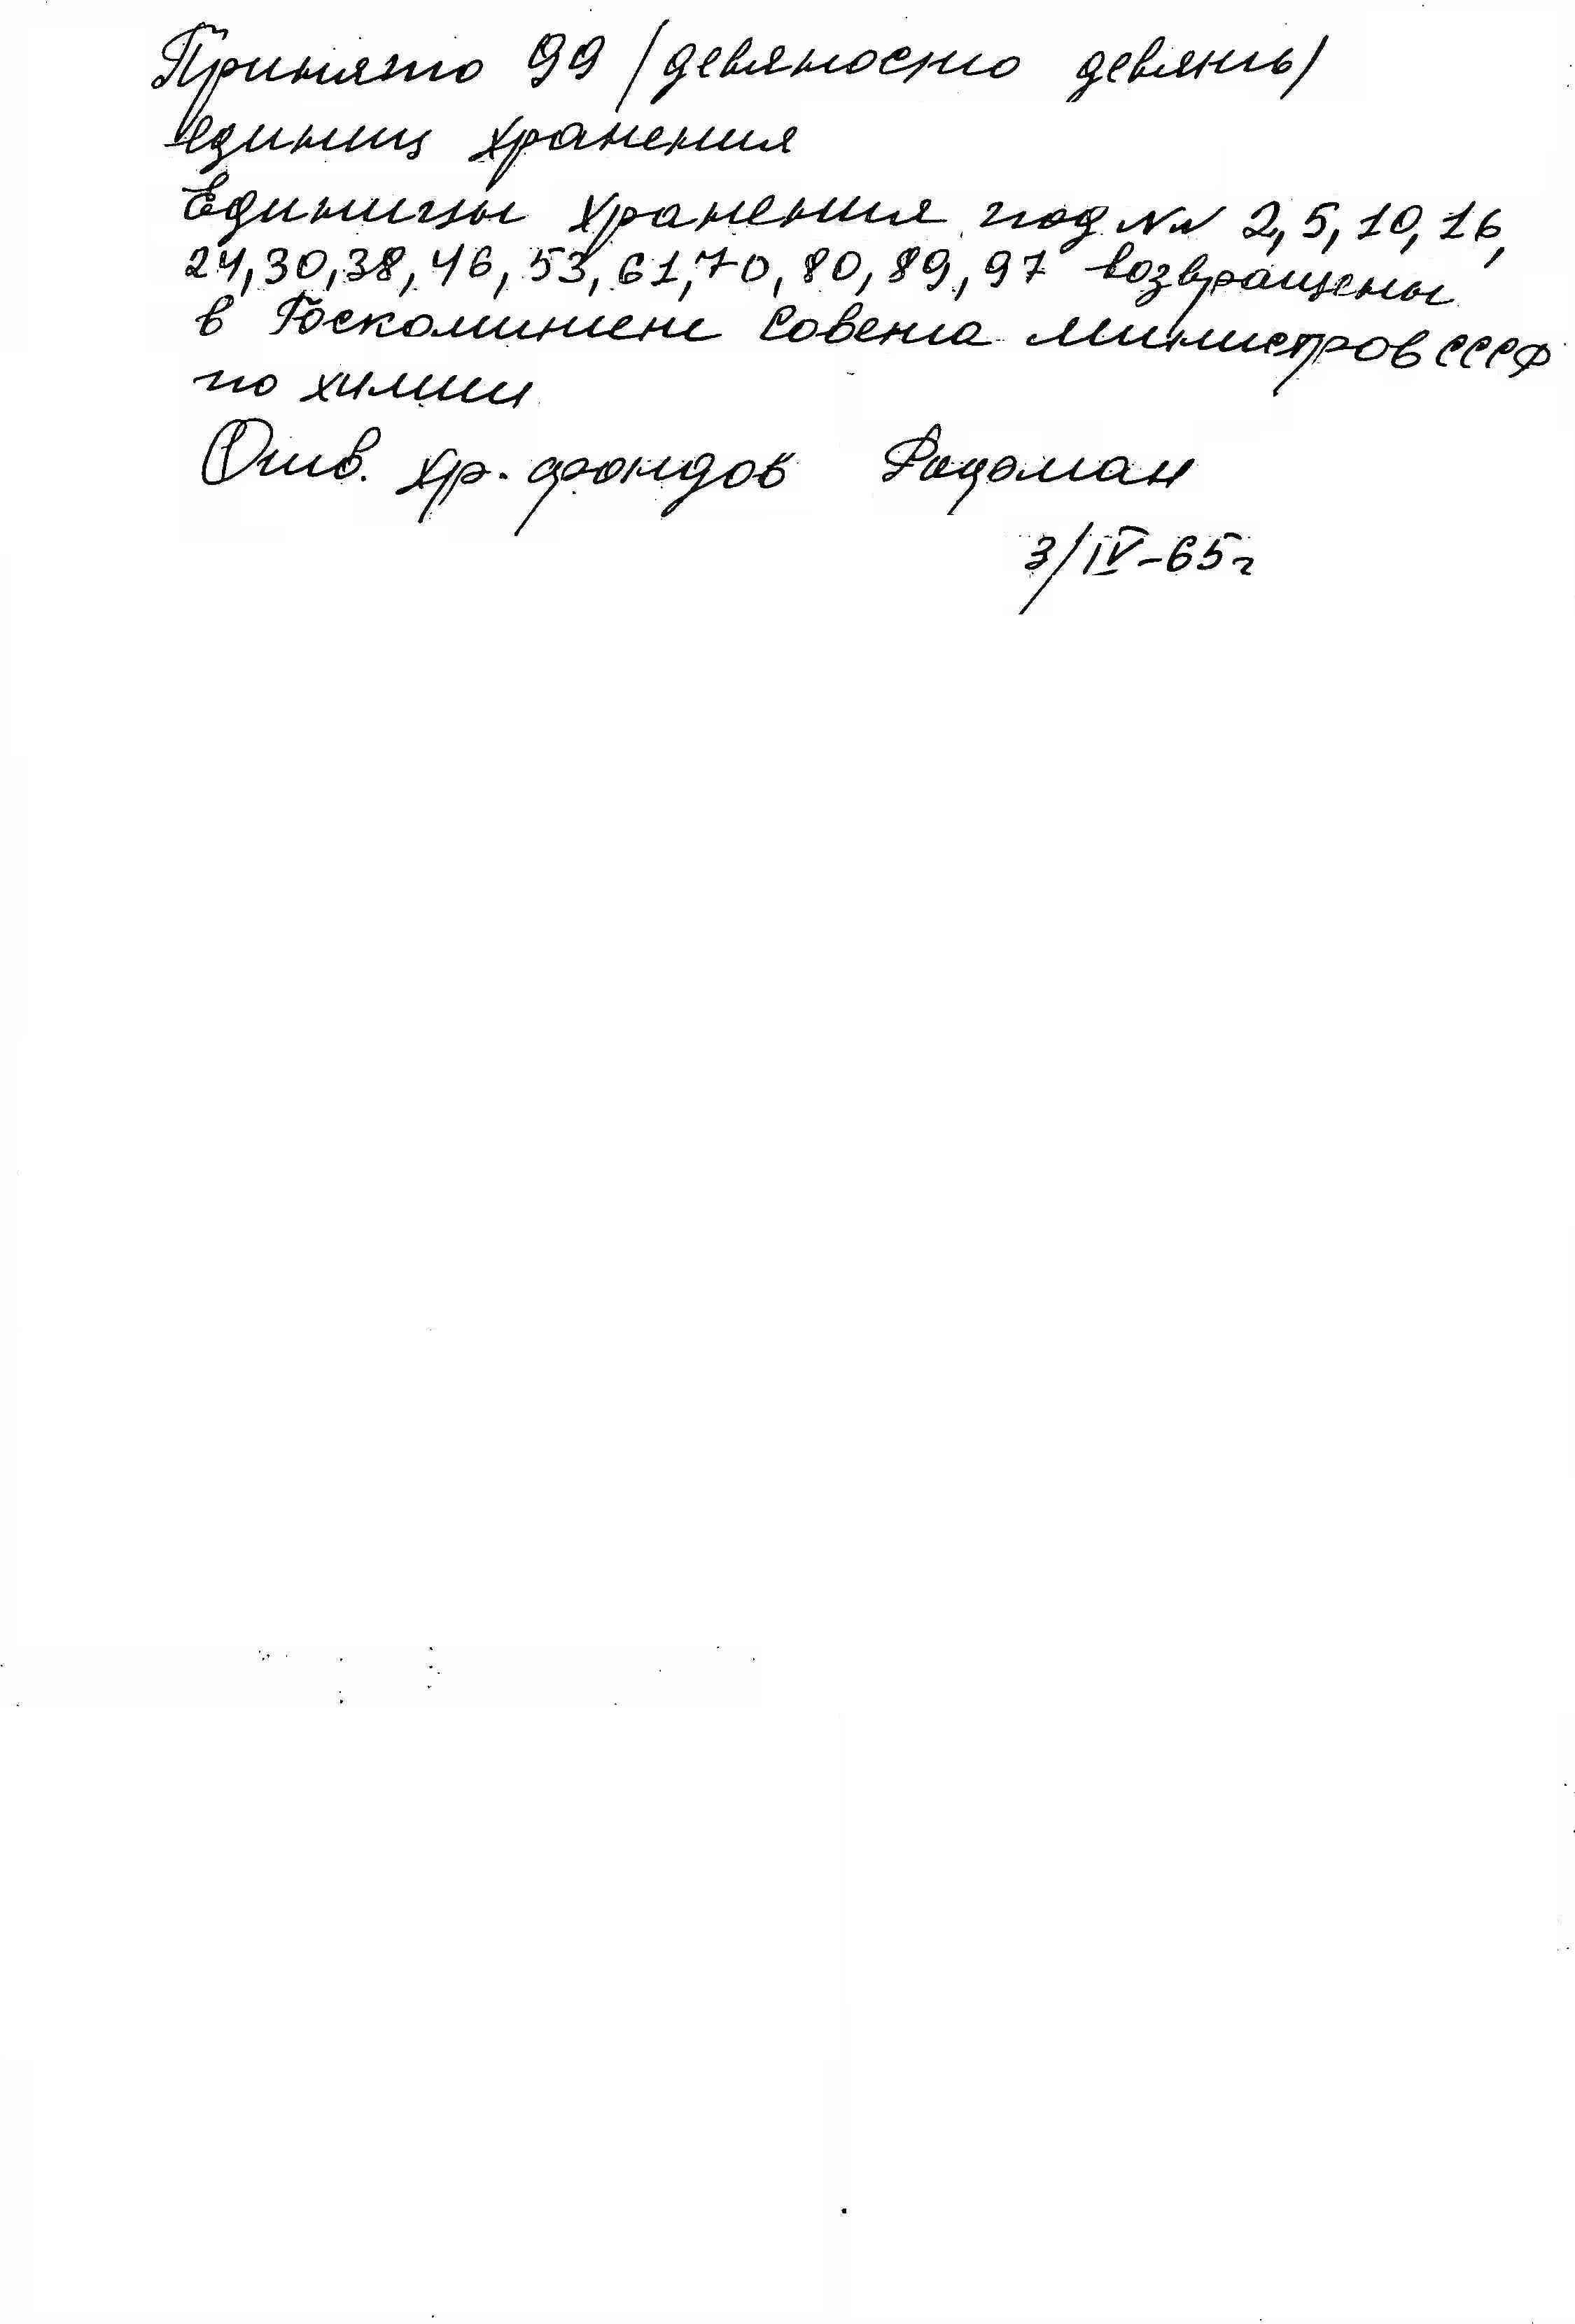 Принято 99 /девяносто девять/
единиц хранения
Единицы хранения под NN 2, 5, 10, 16,
24, 30, 38, 46, 53, 61, 70, 80, 89, 97 возвращены
в Госкомитет Совета министров СССР
по химии
Отв. хр. фондов
3/IV-65г